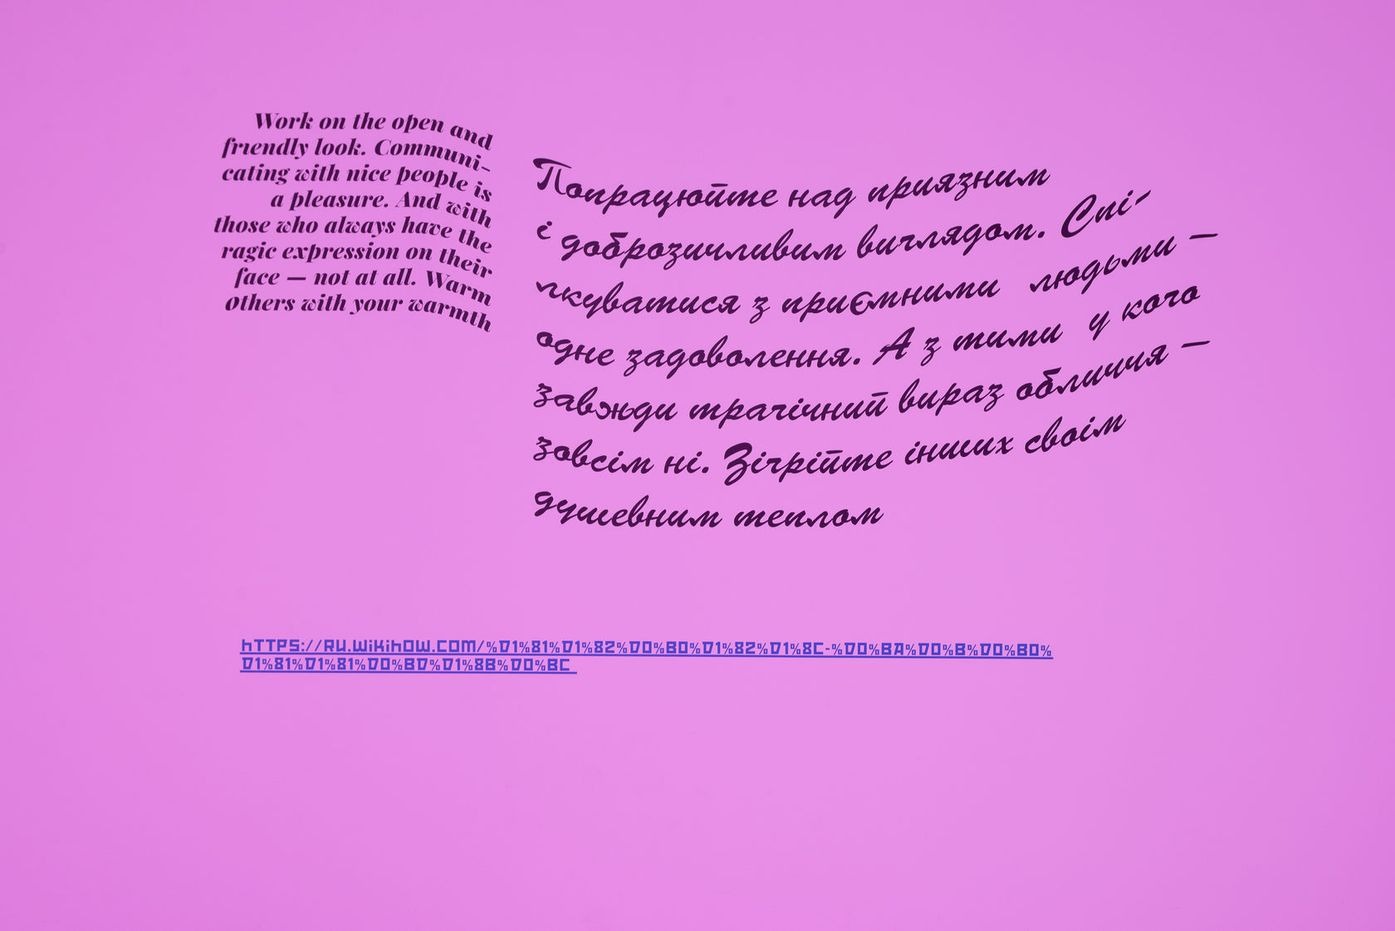 Work on the open and
friendly look. Communi-
cating with nice people is
a pleasure. And with
those who always have the
ragic expression on their
face — not at all. Warm
Others with your warmth
Попрацюйте над приязним
і доброзичливим виглядом. Спі-
лкуватися з приємними людьми —
одне задоволення. А з тими у кого
завжди трагічний вираз обличчя —
зовсім ні. Зігрійте інших своїм
душевним теплом
https://ru.wikihow.com/%D1%81%D1%82%D0%B0%D1%82%D1%8C-%D0%BA%D0%B%D0%B0%
D1%81%D1%81%D0%BD%D1%8B%D0%BC